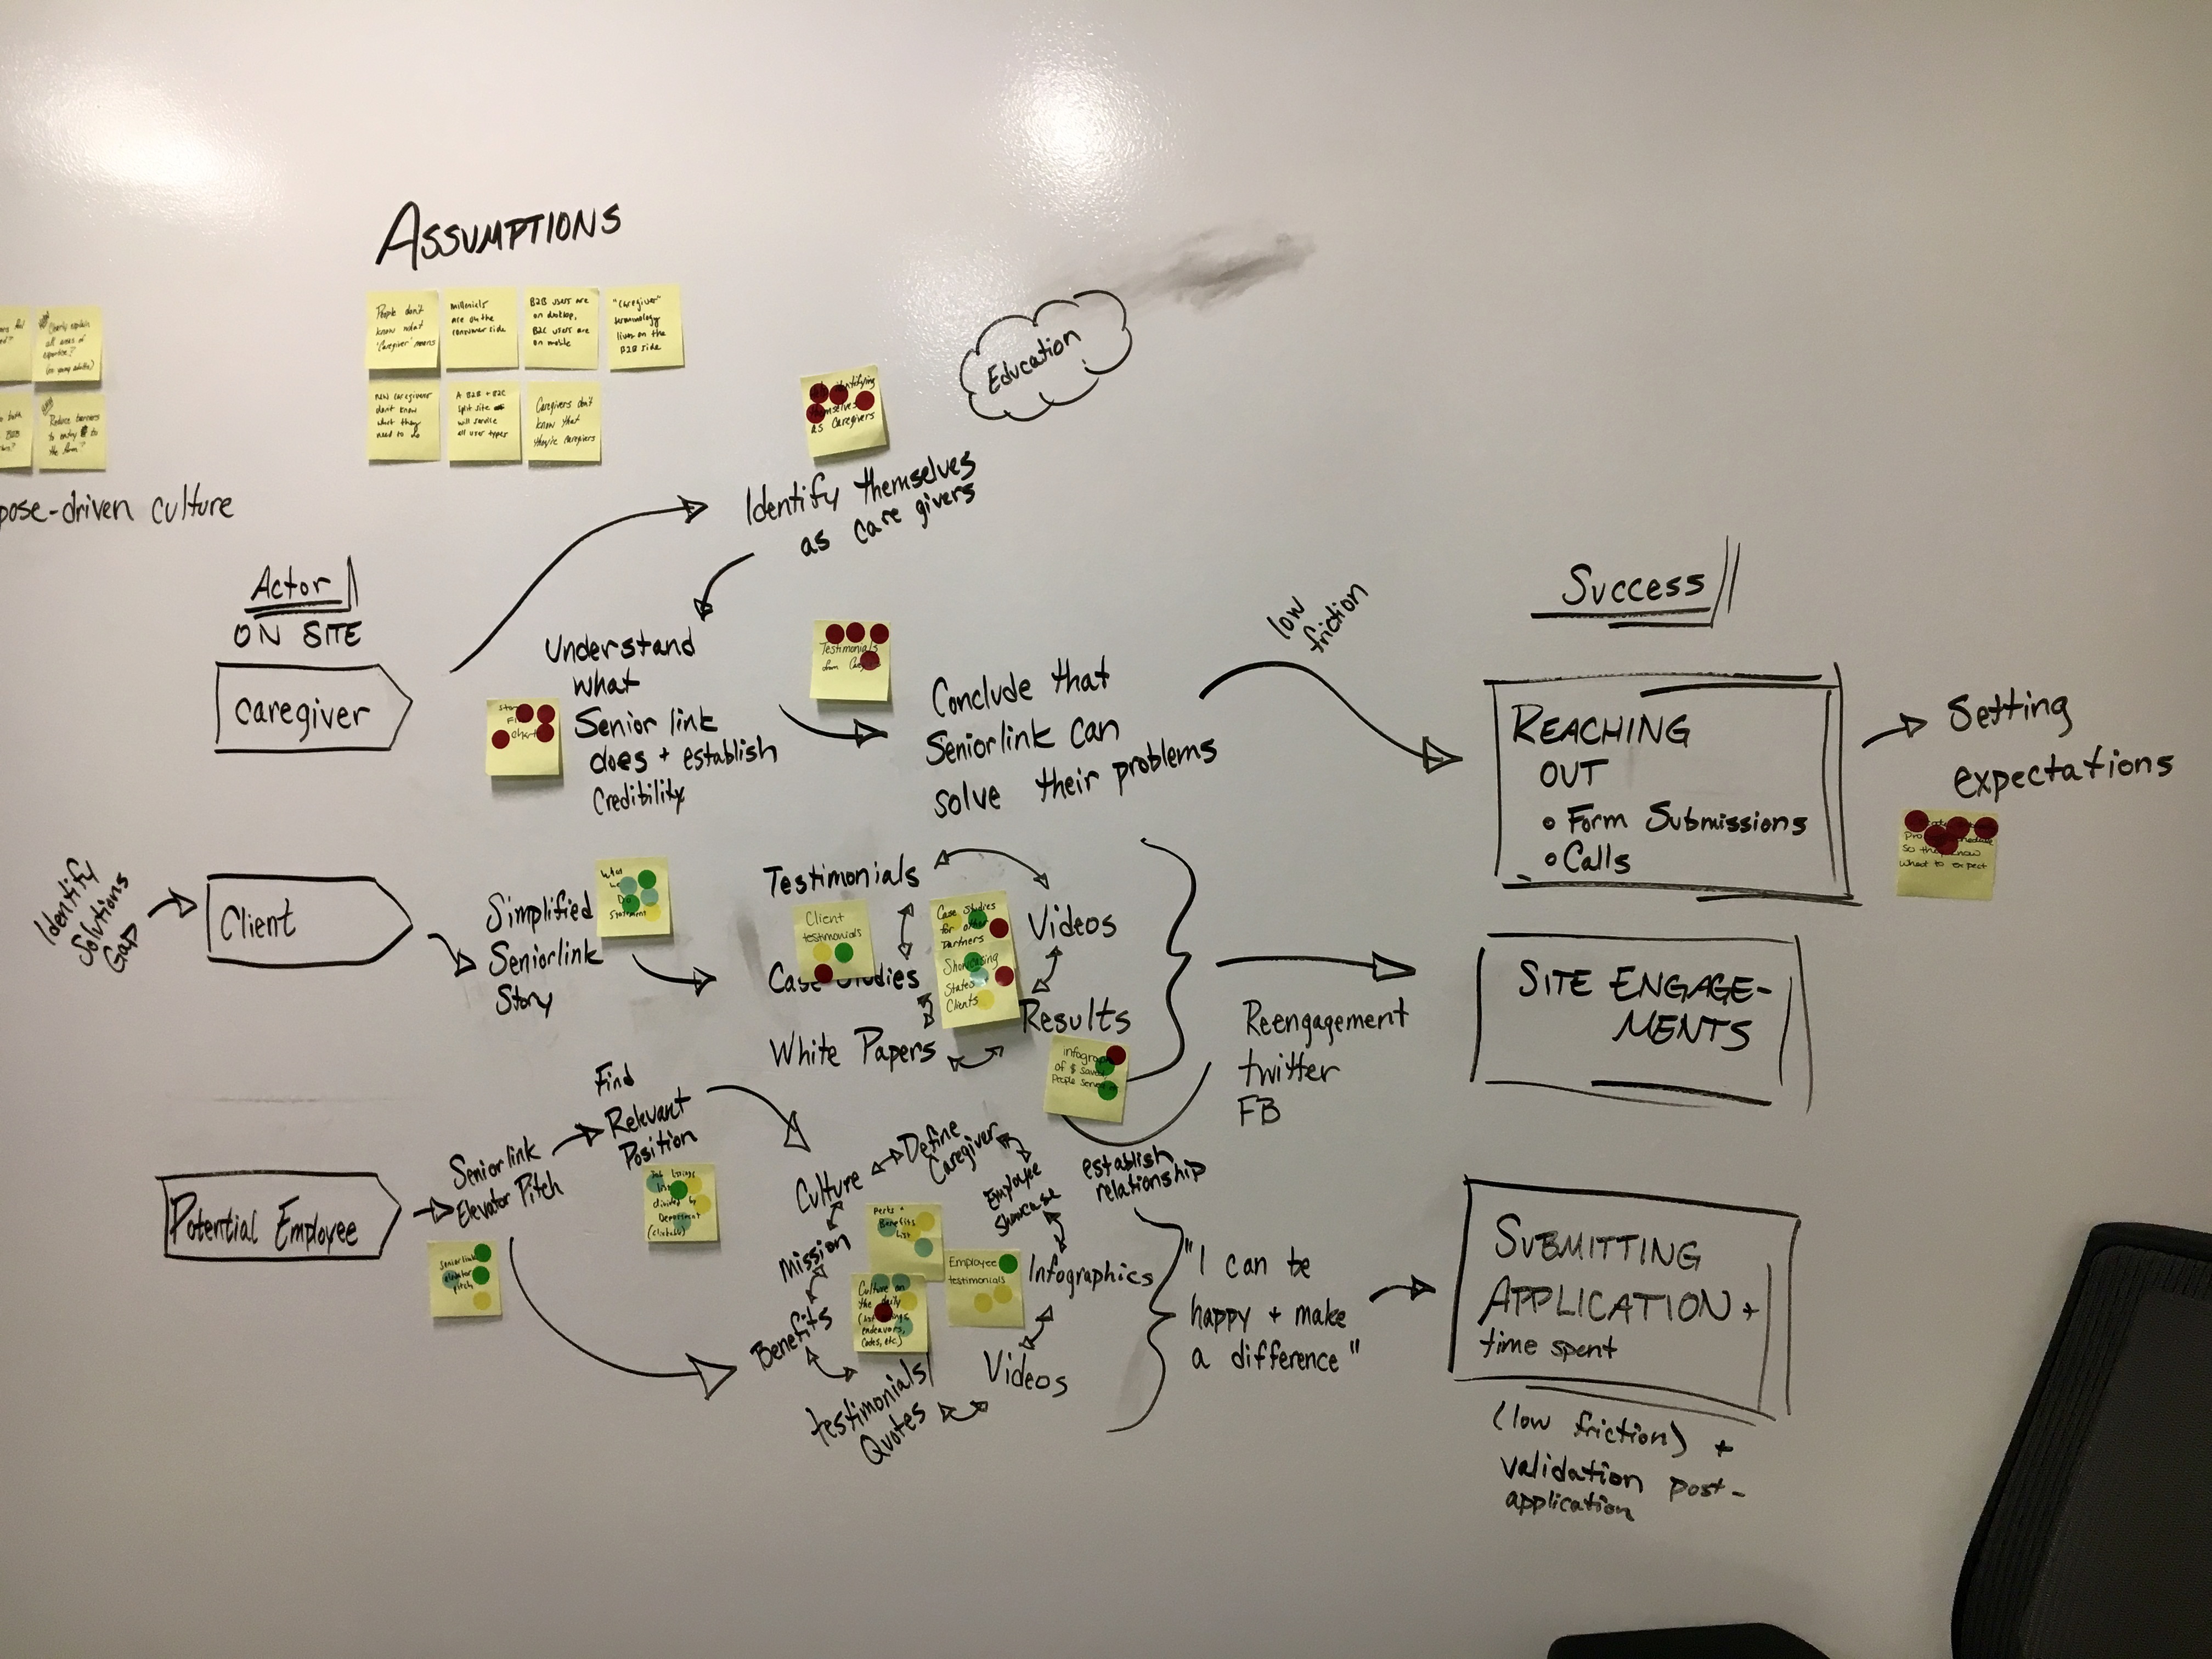 ASSUMPTIONS
People don't
know what
'Caregiver' means
millenials
are on the
consumer side
B2B users are
on desktop,
B2C users are
on mobile
"Caregiver"
terminology
lives on the
B2B side
new caregivers
don't know
what they
need to do
A B2B + B2C
split site
will service
all user types
Caregivers don't
know that
they're caregivers
Clearly explain
all areas of
expertise?
Reduce barriers
to entry to
the firm?
pose-driven culture
Education
identifying
themselves
as caregivers
Identify themselves
as care givers
Actor
ON SITE
Caregiver
Understand
what
Senior link
does + establish
Credibility
Testimonials
from
Conclude that
Seniorlink can
solve their problems
low
friction
Success
REACHING
OUT
• Form Submissions
• Calls
Setting
expectations
So they know
what to expect
Identify
Solutions
Gap
Client
Simplified
Seniorlink
Story
What
we
Do
Statement
Testimonials
Client
testimonials
Case Studies
White Papers
Case Studies
for other
Partners
Showcasing
States
Clients
Videos
Results
infograph
of $ saved
People served
Reengagement
twitter
FB
SITE ENGAGE-
MENTS
Potential Employee
Seniorlink
Elevator Pitch
Seniorlink
elevator
pitch
Find
Relevant
Position
Job listings
divided by
Department
(clickable)
Culture
Define
Caregiver
Employee
Showcase
Infographics
Videos
Testimonials/
Quotes
Benefits
Mission
Perks +
Benefits
list
Employee
testimonials
Culture on
the daily
endeavors,
establish
relationship
"I can be
happy + make
a difference"
SUBMITTING
APPLICATION +
time spent
(low friction) +
validation post-
application